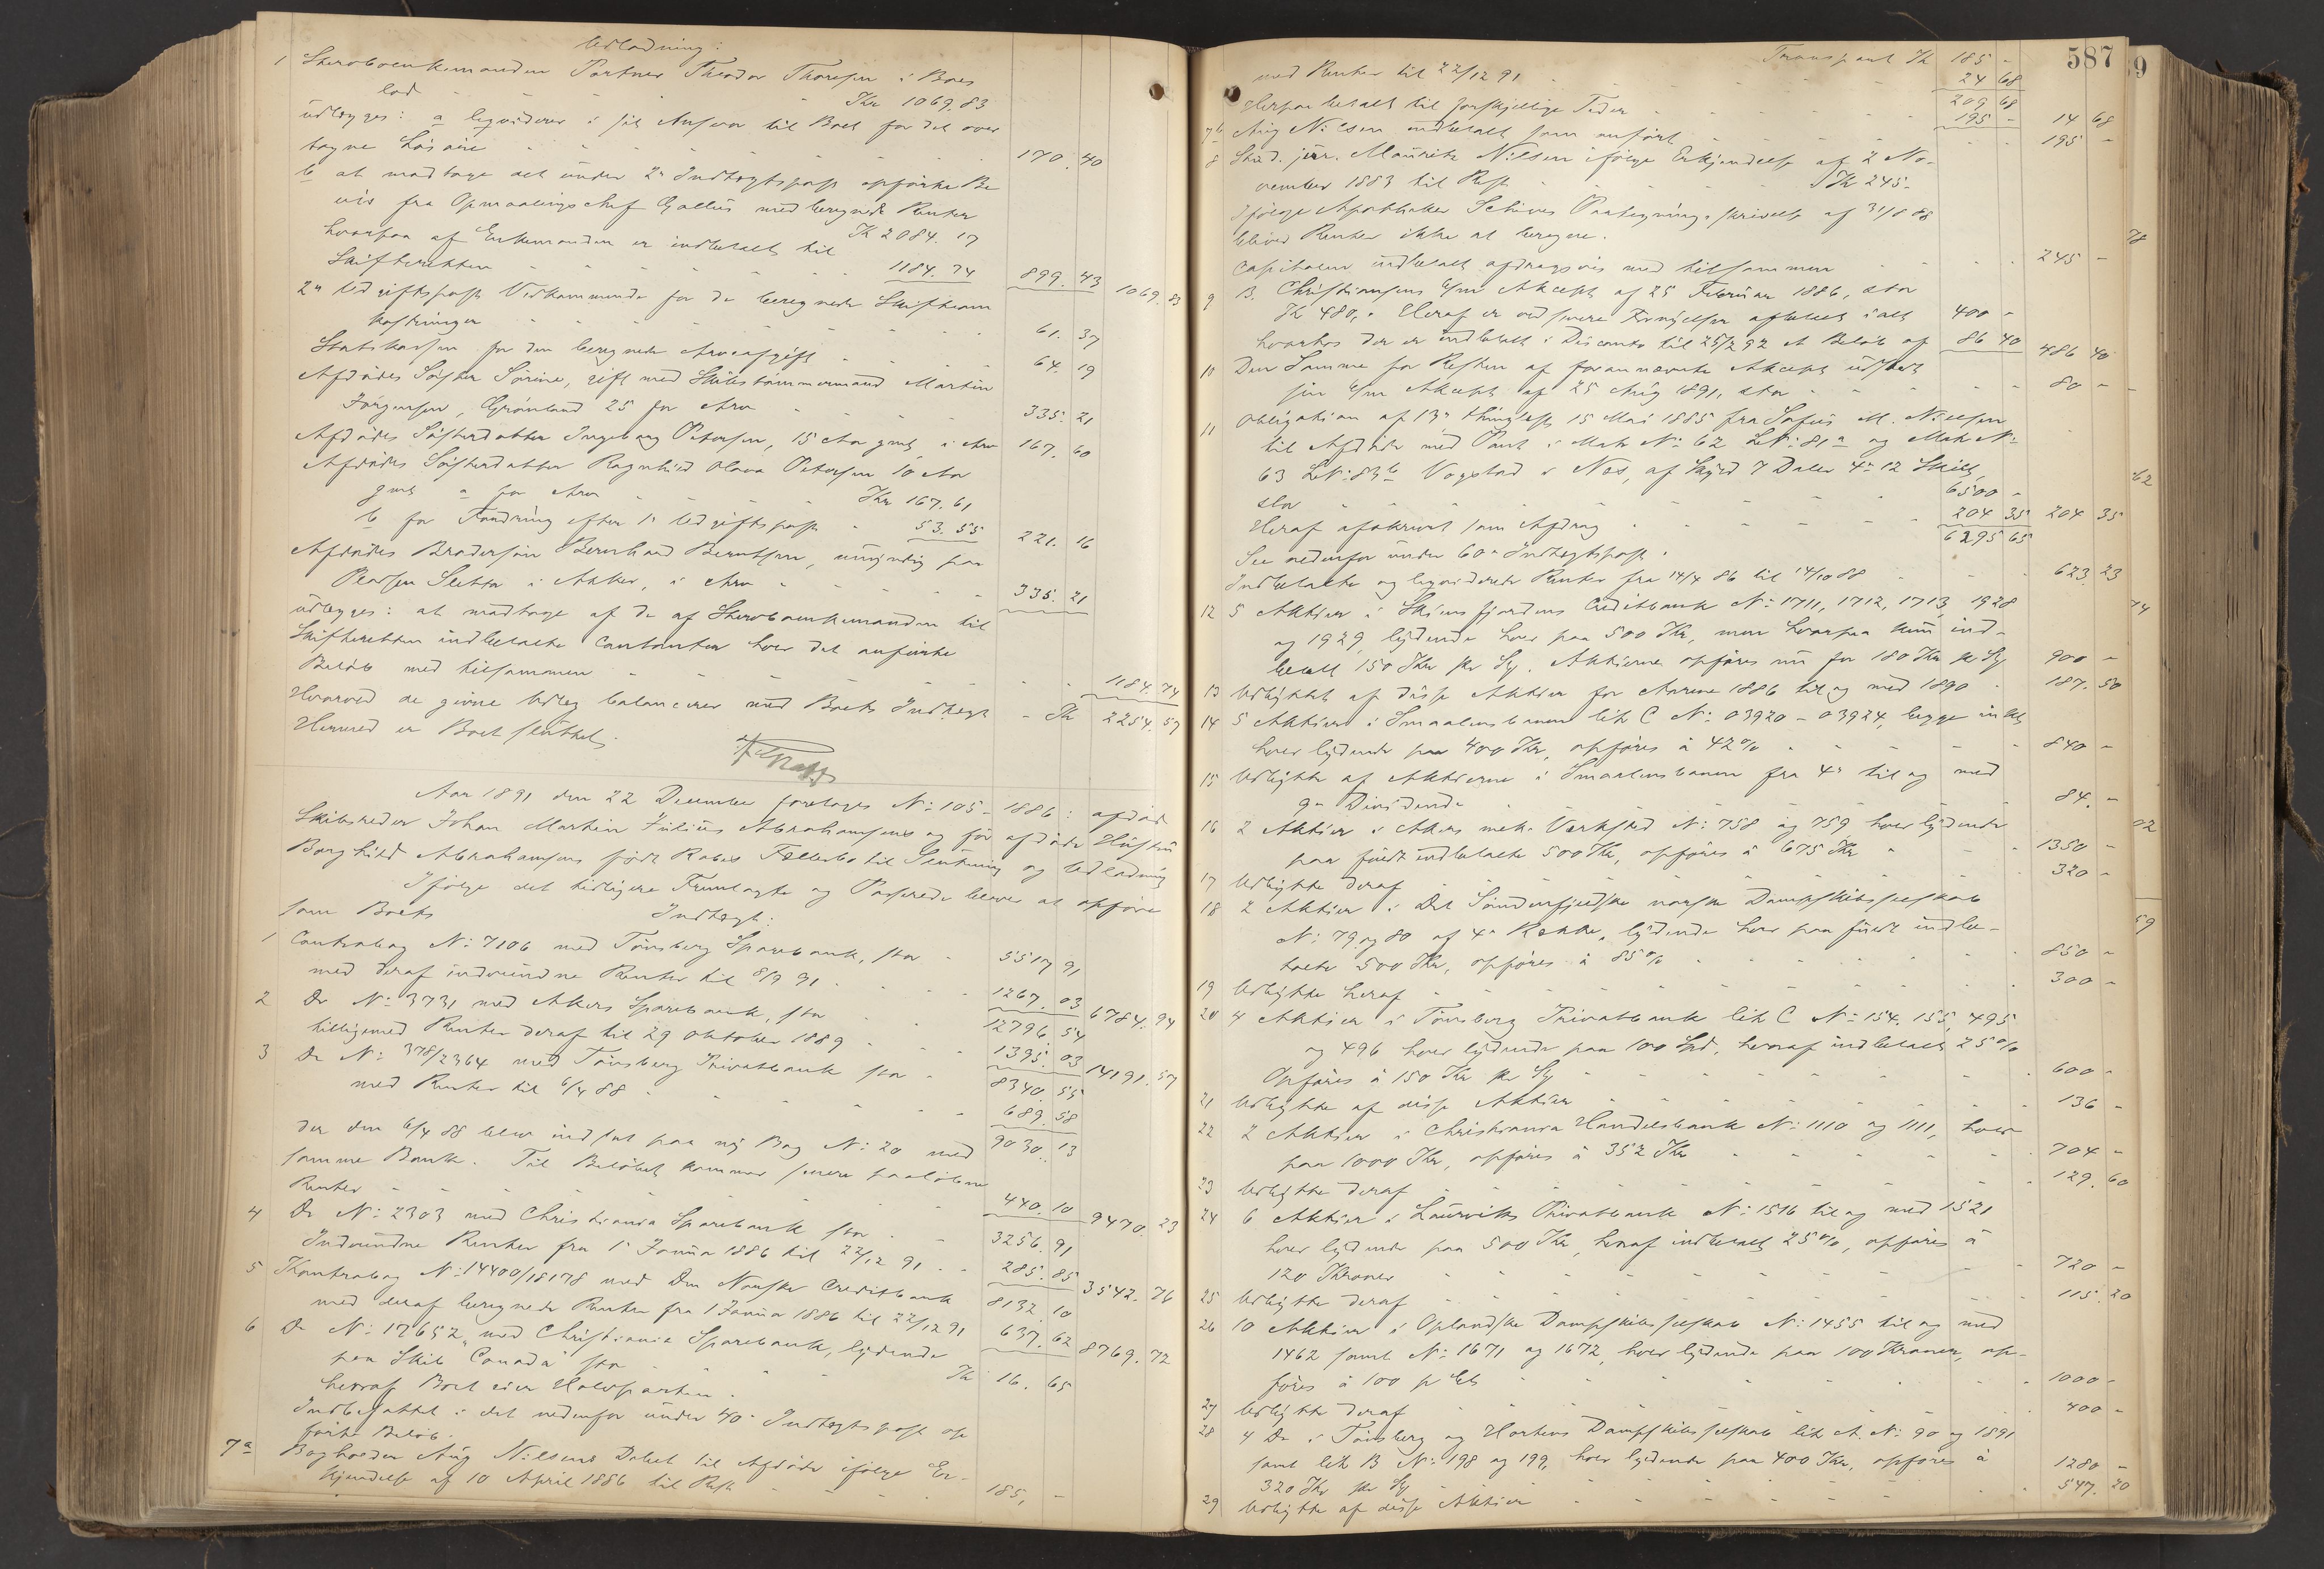 Udlodning:
1 Stervboenkemanden Portner Theodor Thoresen i Boes
lod - - - Kr 1069.83
udlægges: a liqviderer i sit Ansvar til Boet for det over
tagne Løsøre - - - 170.40
b at modtage det under 2n Indtægtspost opførte Be
vis fra Opmaalingschef Gallus med beregnede Renter
Kr 2084.17
hvorpaa af Enkemanden er indbetalt til
Skifteretten - - - 1184.74 899.43 1069.83
2n Udgiftspost Vedkommende for de beregnede Skifteom
kostninger - - - 61.37
Statskassen for den beregnede Arveafgift - - 64.19
Afdødes Søster Sørine, gift med Skibstømmermand Martin
Jørgensen, Grønland 25 for Arv - - - 335.21
Afdødes Søsterdatter Ingeborg Petersen, 15 Aar gml, i Arv 167.60
Afdødes Søsterdatter Ragnhild Olava Petersen 10 Aar
gml a for Arv - - - Kr 167.61
b for Fordring efter 1n Udgiftspost - 53.55 221.16
Afdødes Brodersøn Bernhard Berntsen, umyndig paa
Pladsen Sletta i Aker, i Arv - - - 335.21
udlægges: at modtage af de af Stervboenkemanden til
Skifteretten indbetalte Contanter hver det anførte
Beløb med tilsammen - - - 1184.74
Hvorved de givne Udlæg balancerer med Boets Indtægt - Kr 2254.57
Hermed er Boet sluttet.
Aar 1891 den 22 December foretoges No 105 - 1886: afdøde
Skibsreder Johan Martin Julius Abrahamsens og før afdøde Hustru
Borghild Abrahamsens født Fællesbo til Slutning og Udlodning
Ifølge det tidligere Fremlagte og Passerede bliver at opføre
som Boets Indtægt:
1 Contrabog No 7106 med Tønsberg Sparebank, stor - 5517 91
med deraf indvundne Renter til 8/9 91 - - 1267.03 6784.94
2 Do No 3731 med Akers Sparebank, stor - - 12796.54
tilligemed Renter deraf til 29 Oktober 1889 - - 1395.03 14191.57
3 Do No 378/2364 med Tønsberg Privatbank stor - 8340.55
med Renter til 6/4 88 - - - 689.58
9030.13
der den 6/4 88 blev indsat paa ny Bog No 20 med
samme Bank. Til Beløbet kommer senere paaløbne
Renter - - - 440.10 9470.23
4 Do No 2303 med Christiania Sparebank stor - - 3256.91
Indvundne Renter fra 1 Januar 1886 til 22/12 91 - - 285.85 3542.76
5 Kontrabog No 14400/18178 med Den Norske Creditbank 8132 10
med deraf beregnede Renter fra 1 Januar 1886 til 22/12 91 637.62 8769.72
6 Do No 17652 med Christiania Sparebank, lydende
paa Skib "Canada" stor - - - Kr 16.65
hvoraf Boet eier Halvparten.
Indbefattet i det nedenfor under 40n Indtægtspost op
førte Beløb.
7a Bogholder Aug Nilsens Debet til Afdøde ifølge Er-
kjendelse af 10 April 1886 til Rest - - 185, -
587
Transport Kr 185 -
med Renter til 22/12 91 - - - 24 68
209 68
Herpaa betalt til forskjellige Tider - - - 195 - 14 68
7b Aug Nilsen indbetalt som anført - - - 195 -
8 Stud. jur. Mauritz Nilsen ifølge Erkjendelse af 2 No-
vember 1883 til Rest - - - Kr 245-
Ifølge Apotheker Schives Paategningsskrivelse af 31/8 88
bliver Renter ikke at beregne.
Capitalen indbetalt afdragsvis med tilsammen - - - 245 -
9 B. Christiansens 6/m Akcept af 25 Februar 1886, stor
Kr 480,- Heraf er ved senere Fornyelser afbetalt ialt 400 -
hvorhos der er indbetalt i Disconto til 25/2 92 et Beløb af 86 40 486 40
10 Den Samme for Resten af forannævnte Akcept udstedt
sin 6/m Akcept af 25 Aug 1891, stor - - - 80 -
11 Obligation af 13n thinglæst 15 Mai 1885 fra Sofus M. Nielsen
til Afdøde med Pant i Matr No 62 LNo 81a og Matr No
63 LNo 83b Vogstad i Næs, af Skyld 7 Daler 4n 12 Skill,
stor - - - 6500 -
Heraf afskrevet som Afdrag - - - 204 35 204 35
6295 65
See nedenfor under 60n Indtægtspost.
Indbetalte og liqviderede Renter fra 14/4 86 til 14/10 88 - - - 623.23
12 5 Aktier i Skiensfjordens Creditbank No 1711, 1712, 1713, 1928
og 1929, lydende hver paa 500 Kr, men hvorpaa kun ind-
betalt 150 Kr pr Sty. Aktierne opføres nu for 180 Kr pr Sty 900 -
13 Udbyttet af disse Aktier for Aarene 1886 til og med 1890 - 187.50
14 5 Aktier i Smaalensbanen litr C No 03920 - 03924, begge inkl
hver lydende paa 400 Kr, opføres à 42% - - - 840 -
15 Udbytte af Aktierne i Smaalensbanen fra 4n til og med
9n Dividende - - - 84.-
16 2 Aktier i Akers mek. Værksted No 758 og 759, hver lydende
paa fuldt indbetalte 500 Kr, opføres à 675 Kr - - - 1350 -
17 Udbytte deraf - - - 320 -
18 2 Aktier i Det Søndenfjeldske norske Dampskibsselskab
No 79 og 80 af 4n Række, lydende hver paa fuldt indbe-
talte 500 Kr, opføres à 85% - - - 850 -
19 Udbytte heraf - - - 300 -
20 4 Aktier i Tønsberg Privatbank litr C No 154. 155, 495
og 496 hver lydende paa 100 Spd, hvoraf indbetalt 25%
Opføres à 150 Kr pr Sty - - - 600 -
21 Udbytte af disse Aktier - - - 136 -
22 2 Aktier i Christiania Handelsbank No 1110 og 1111, hver
paa 1000 Kr, opføres à 352 Kr - - - 704 -
23 Udbytte deraf - - - 129.60
24 6 Aktier i Laurviks Privatbank No 1516 til og med 1521
hver lydende paa 500 Kr, hvoraf indbetalt 25%, opføres à
120 Kroner - - - 720 -
25 Udbytte deraf - - - 115.20
26 10 Aktier i Oplandske Dampskibsselskab No 1455 til og med
1462 samt No 1671 og 1672, hver lydende paa 100 Kroner, op-
føres à 100 pr Ct - - - 1000 -
27 Udbytte deraf - - - 400 -
28 4 Do i Tønsberg og Hortens Dampskibsselskab litr A. No 90 og 1891
samt litr B No 198 og 199, hver lydende paa 400 Kr, opføres à
320 Kr pr Sty - - - 1280 -
29 Udbytte af disse Aktier - - - 547.20
9
78
62
74
02
59